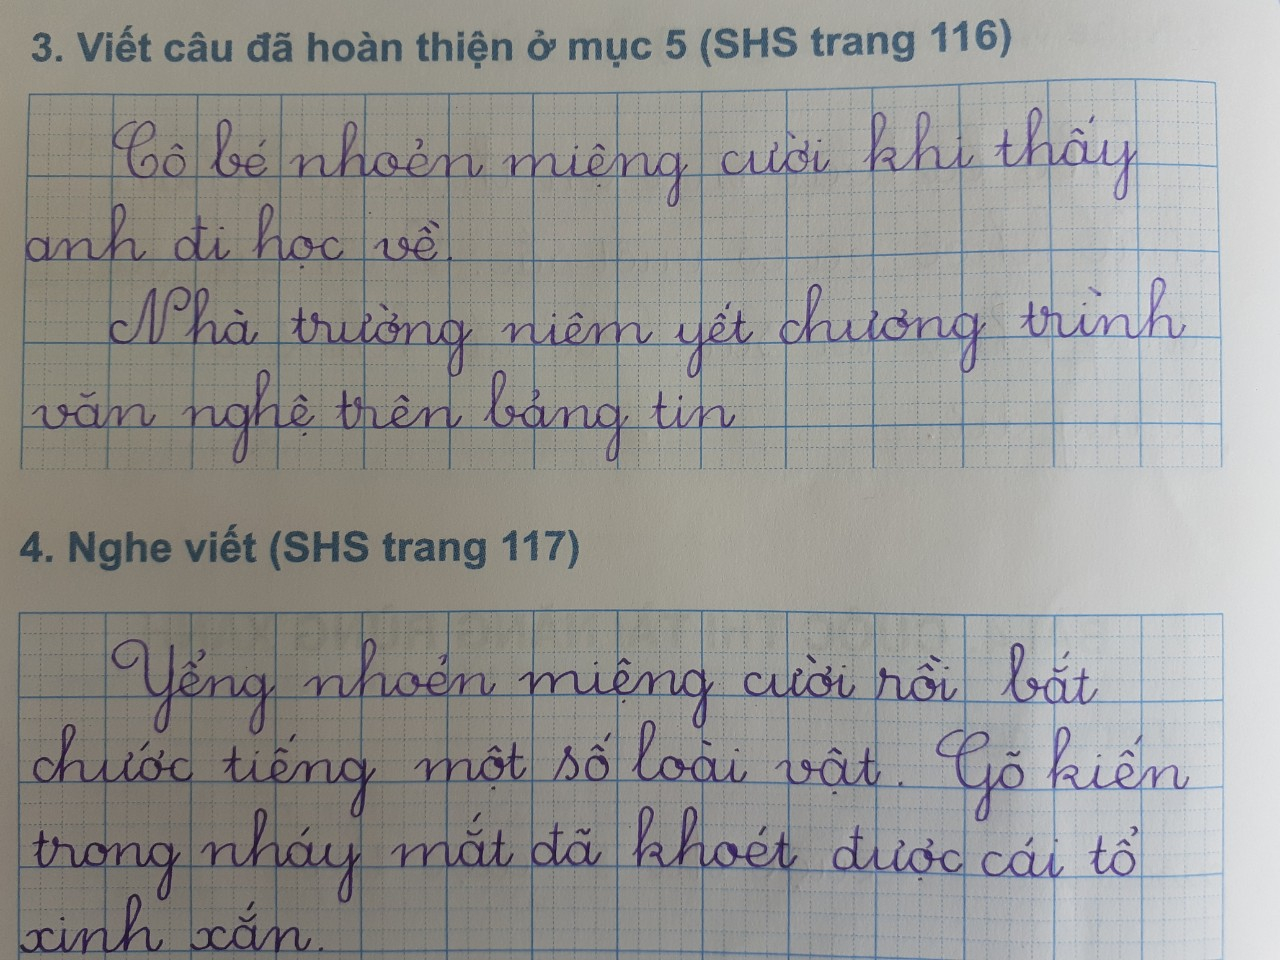 3. Viết câu đã hoàn thiện ở mục 5 (SHS trang 116)
Cô bé nhoẻn miệng cười khi thấy
anh đi học về.
Nhà trường niêm yết chương trình
văn nghệ trên bảng tin
4. Nghe viết (SHS trang 117)
Yểng nhoẻn miệng cười rồi bắt
chước tiếng một số loài vật. Gõ kiến
trong nháy mắt đã khoét được cái tổ
xinh xắn.